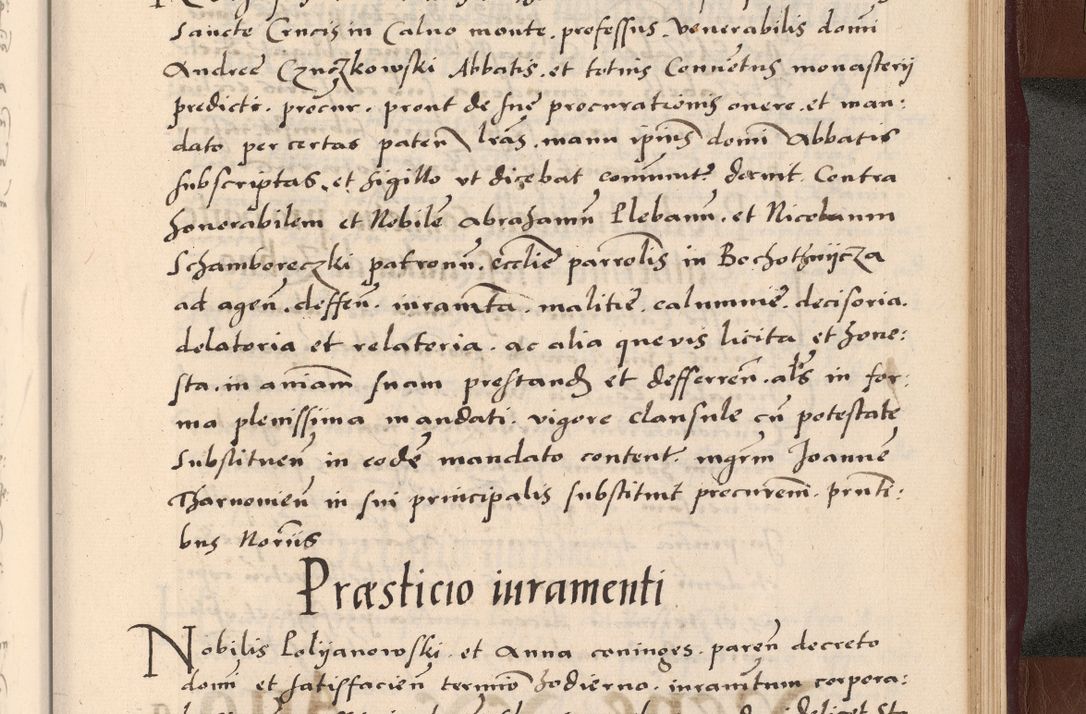 Sancte Crucis in Caluo monte. professus. venerabilis domi
Andree Czuczkowski Abbatis. et totius Conuetus monasterij
predicti. procur. prout de sue procurationis onere. et man:
dato per certas paten lras. manu ipius domi Abbatis
subscriptas. et sigillo vt dicebat comunit docuit. Contra
honorabilem et Nobile Abrahamu Plebanu. et Nicolaum
Schamboreczki patronu. ecclie parrolis in Bochothnijcza
ad agen. deffen. iuramta. malitie. calumnie. decisoria.
delatoria et relatoria. ac alia quevis licita et hone:
sta. in aniam suam prestand et defferren. als in for:
ma plenissima mandati. vigore clausule cu potestate
substituen in eode mandato content. mgrm Joanne
Tharnouien in sui principalis substituit procurem. prnti:
bus Noriis
Præsticio iuramenti
Nobilis Polijanowski. et Anna coniuges. paren decreto
domi et satisfacien termio hodierno. iuramtum corpora: